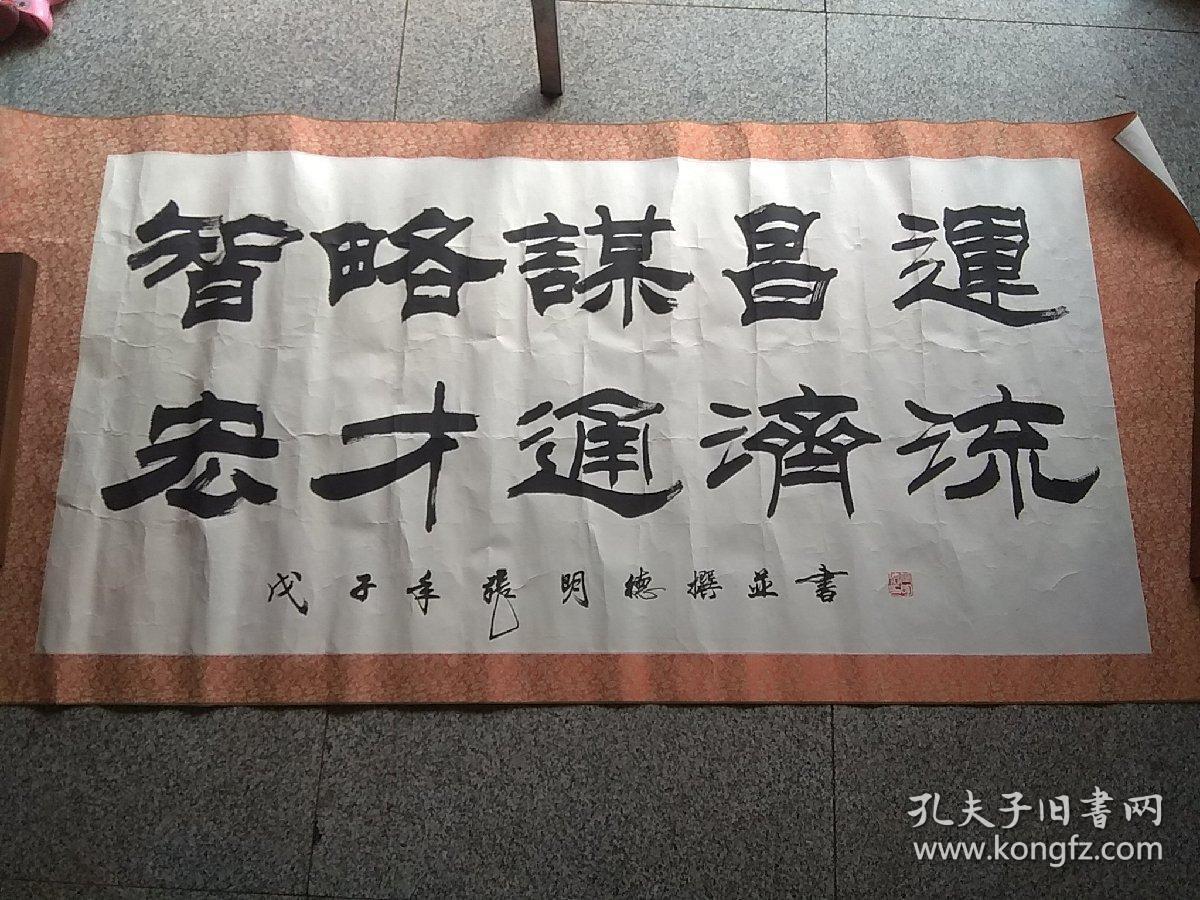 智略謀昌運
宏才通濟流
戊子年張明德撰並書
孔夫子旧書网
www.kongfz.com